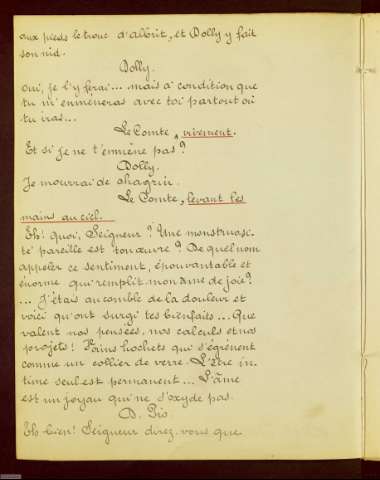 aux pieds le tronc d'Albrit, et Dolly y fait
son nid.
Dolly.
Oui, je l'y ferai... mais à condition que
tu m'enmèneras avec toi partout où
tu iras...
Le Comte, vivement.
Et si je ne t'emmène pas?
Dolly.
Je mourrai de chagrin.
Le Comte, levant les
mains au ciel.
Eh! quoi, Seigneur? Une monstruosi-
té pareille est ton œuvre? De quel nom
appeler ce sentiment, épouvantable et
énorme qui remplit mon âme de joie?
... J'étais au comble de la douleur et
voici qu'ont surgi tes bienfaits... Que
valent nos pensées, nos calculs et nos
projets! Vains hochets qui s'égrènent
comme un collier de verre. L'être in-
time seul est permanent... L'âme
est un joyau qui ne s'oxyde pas.
D. Pio.
Eh bien! Seigneur direz-vous que